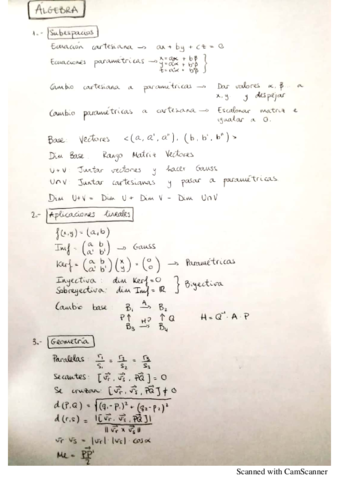 ALGEBRA
1.- Subespacios
Ecuación cartesiana → ax + by + cz = 0
Ecuaciones paramétricas → x=aα + bβ
y=a'α + b'β
z=a''α + b''β
Cambio cartesiana a paramétricas → Dar valores α, β a
x, y y despejar
Cambio paramétricas a cartesiana → Escalonar matriz e
igualar a 0.
Base Vectores <(a, a', a''), (b, b', b'')>
Dim Base Rango Matriz Vectores
U+V Juntar vectores y hacer Gauss
U∩V Juntar cartesianas y pasar a paramétricas
Dim U+V = Dim U + Dim V - Dim U∩V
2.- Aplicaciones lineales
f(x,y) = (a,b)
Imf = (a b / a' b') → Gauss
Kerf = (a b / a' b') (x / y) = (0 / 0) → Paramétricas
Inyectiva: dim Kerf = 0
Sobreyectiva: dim Imf = R } Biyectiva
Cambio base B₁ A→ B₂
P↑ H? ↑Q
B₃ → B₄
H = Q⁻¹ · A · P
3.- Geometría
Paralelas: r₁/s₁ = r₂/s₂ = r₃/s₃
Secantes: [vr, vs, PQ] = 0
Se cruzan: [vr, vs, PQ] ≠ 0
d(P,Q) = √((q₁-p₁)² + (q₂-p₂)²)
d(r,s) = |[vr, vs, PQ]| / ||vr x vs||
vr · vs = |vr| · |vs| · cos α
PP'/2
Scanned with CamScanner